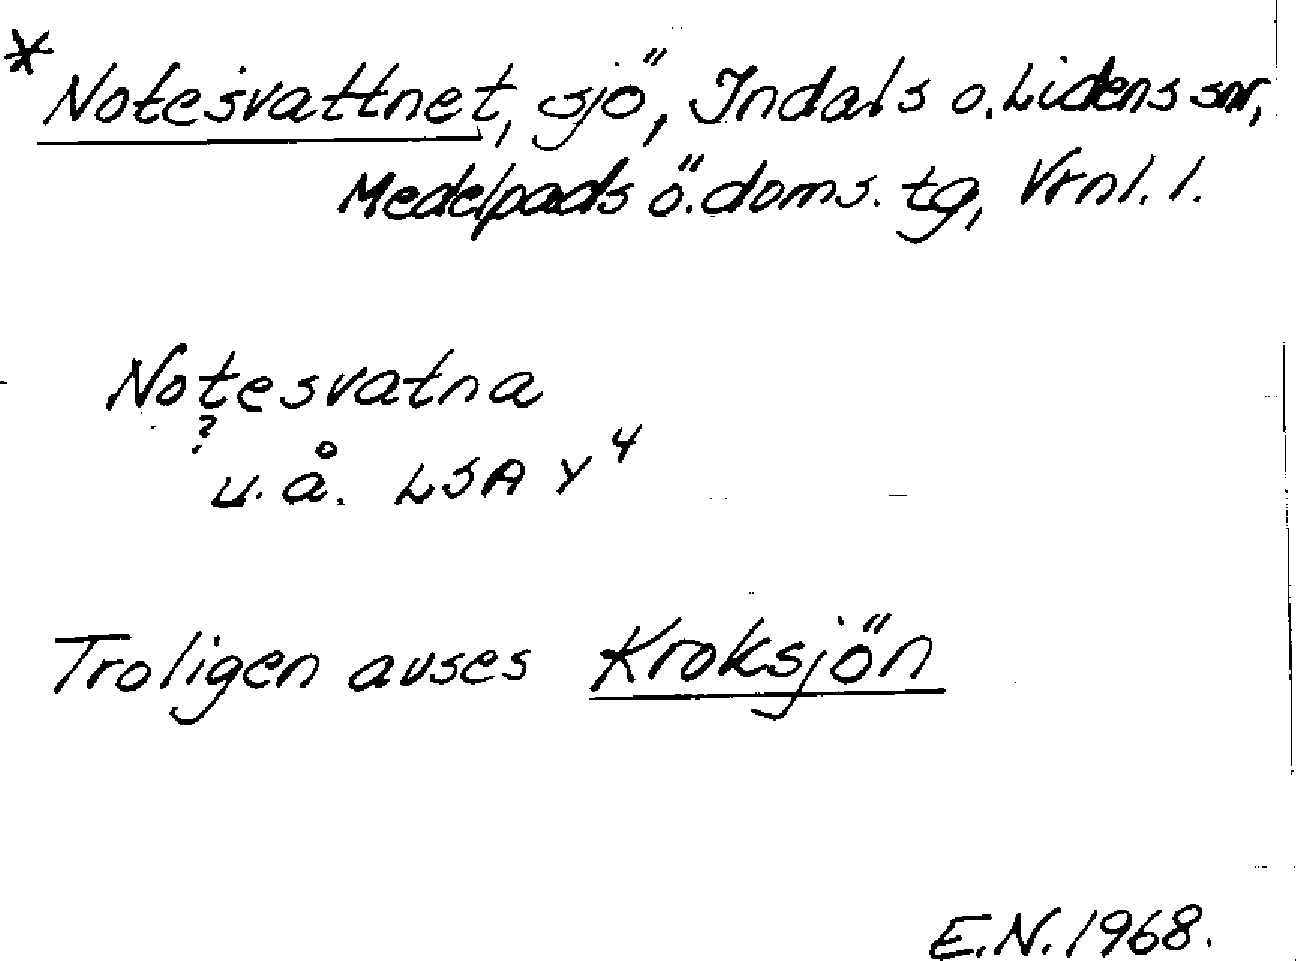 * Notesvattnet, sjö, Indals o. Lidens snr,
Medelpads ö. doms. tg, Vrnl. l.
Notesvatna
?
u. å. LSA Y⁴
Troligen avses Kroksjön
E.N. 1968.